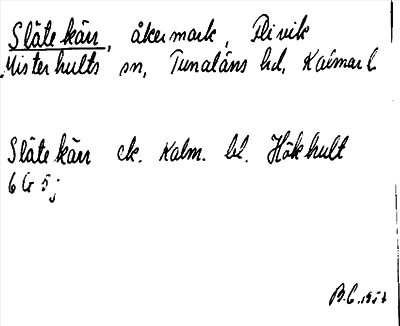 Släte kärr, åkermark, Flivik
Misterhults sn, Tunaläns hd, Kalmar l.
Släte kärr ek. Kalm. bl. Hökhult
6 G 5 j
B.C. 1957